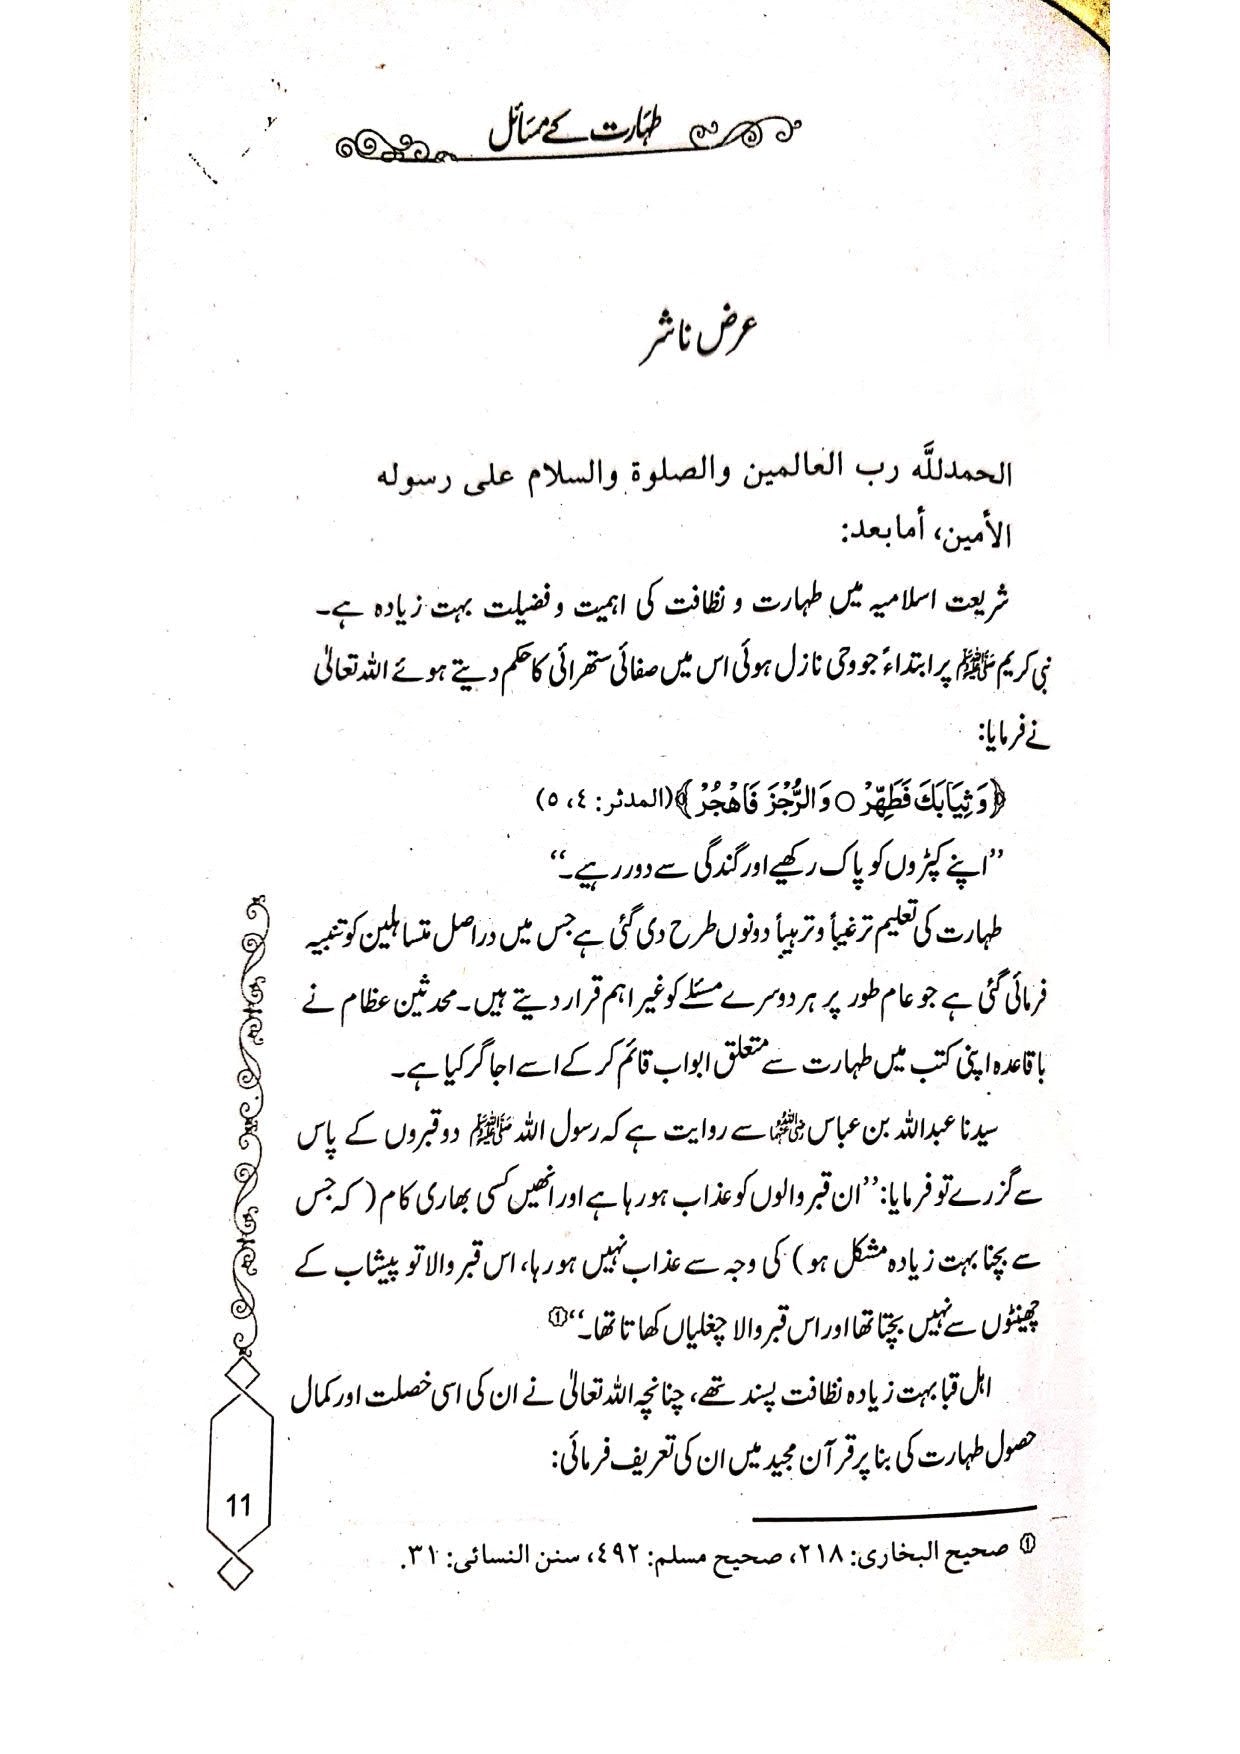 طہارت کے مسائل
عرض ناشر
الحمدللّٰه رب العالمين والصلوة والسلام على رسوله
الأمين، أمابعد:
شریعت اسلامیہ میں طہارت و نظافت کی اہمیت و فضیلت بہت زیادہ ہے۔
نبی کریم ﷺ پر ابتداءً جو وحی نازل ہوئی اس میں صفائی ستھرائی کا حکم دیتے ہوئے اللہ تعالیٰ
نے فرمایا:
﴿وَثِيَابَكَ فَطَهِّرْ ○ وَالرُّجْزَ فَاهْجُرْ﴾ (المدثر: ٤، ٥)
’’اپنے کپڑوں کو پاک رکھیے اور گندگی سے دور رہیے۔‘‘
طہارت کی تعلیم ترغیباً و ترہیباً دونوں طرح دی گئی ہے جس میں دراصل متساہلین کو تنبیہ
فرمائی گئی ہے جو عام طور پر ہر دوسرے مسئلے کو غیر اہم قرار دیتے ہیں۔ محدثین عظام نے
باقاعدہ اپنی کتب میں طہارت سے متعلق ابواب قائم کر کے اسے اجاگر کیا ہے۔
سیدنا عبداللہ بن عباس رضی اللہ عنہما سے روایت ہے کہ رسول اللہ ﷺ دو قبروں کے پاس
سے گزرے تو فرمایا: ’’ان قبر والوں کو عذاب ہو رہا ہے اور انھیں کسی بھاری کام ( کہ جس
سے بچنا بہت زیادہ مشکل ہو ) کی وجہ سے عذاب نہیں ہو رہا، اس قبر والا تو پیشاب کے
چھینٹوں سے نہیں بچتا تھا اور اس قبر والا چغلیاں کھاتا تھا۔‘‘ ①
اہل قبا بہت زیادہ نظافت پسند تھے، چنانچہ اللہ تعالیٰ نے ان کی اسی خصلت اور کمال
حصول طہارت کی بنا پر قرآن مجید میں ان کی تعریف فرمائی:
① صحیح البخاری: ٢١٨، صحیح مسلم: ٤٩٢، سنن النسائی: ٣١.
11